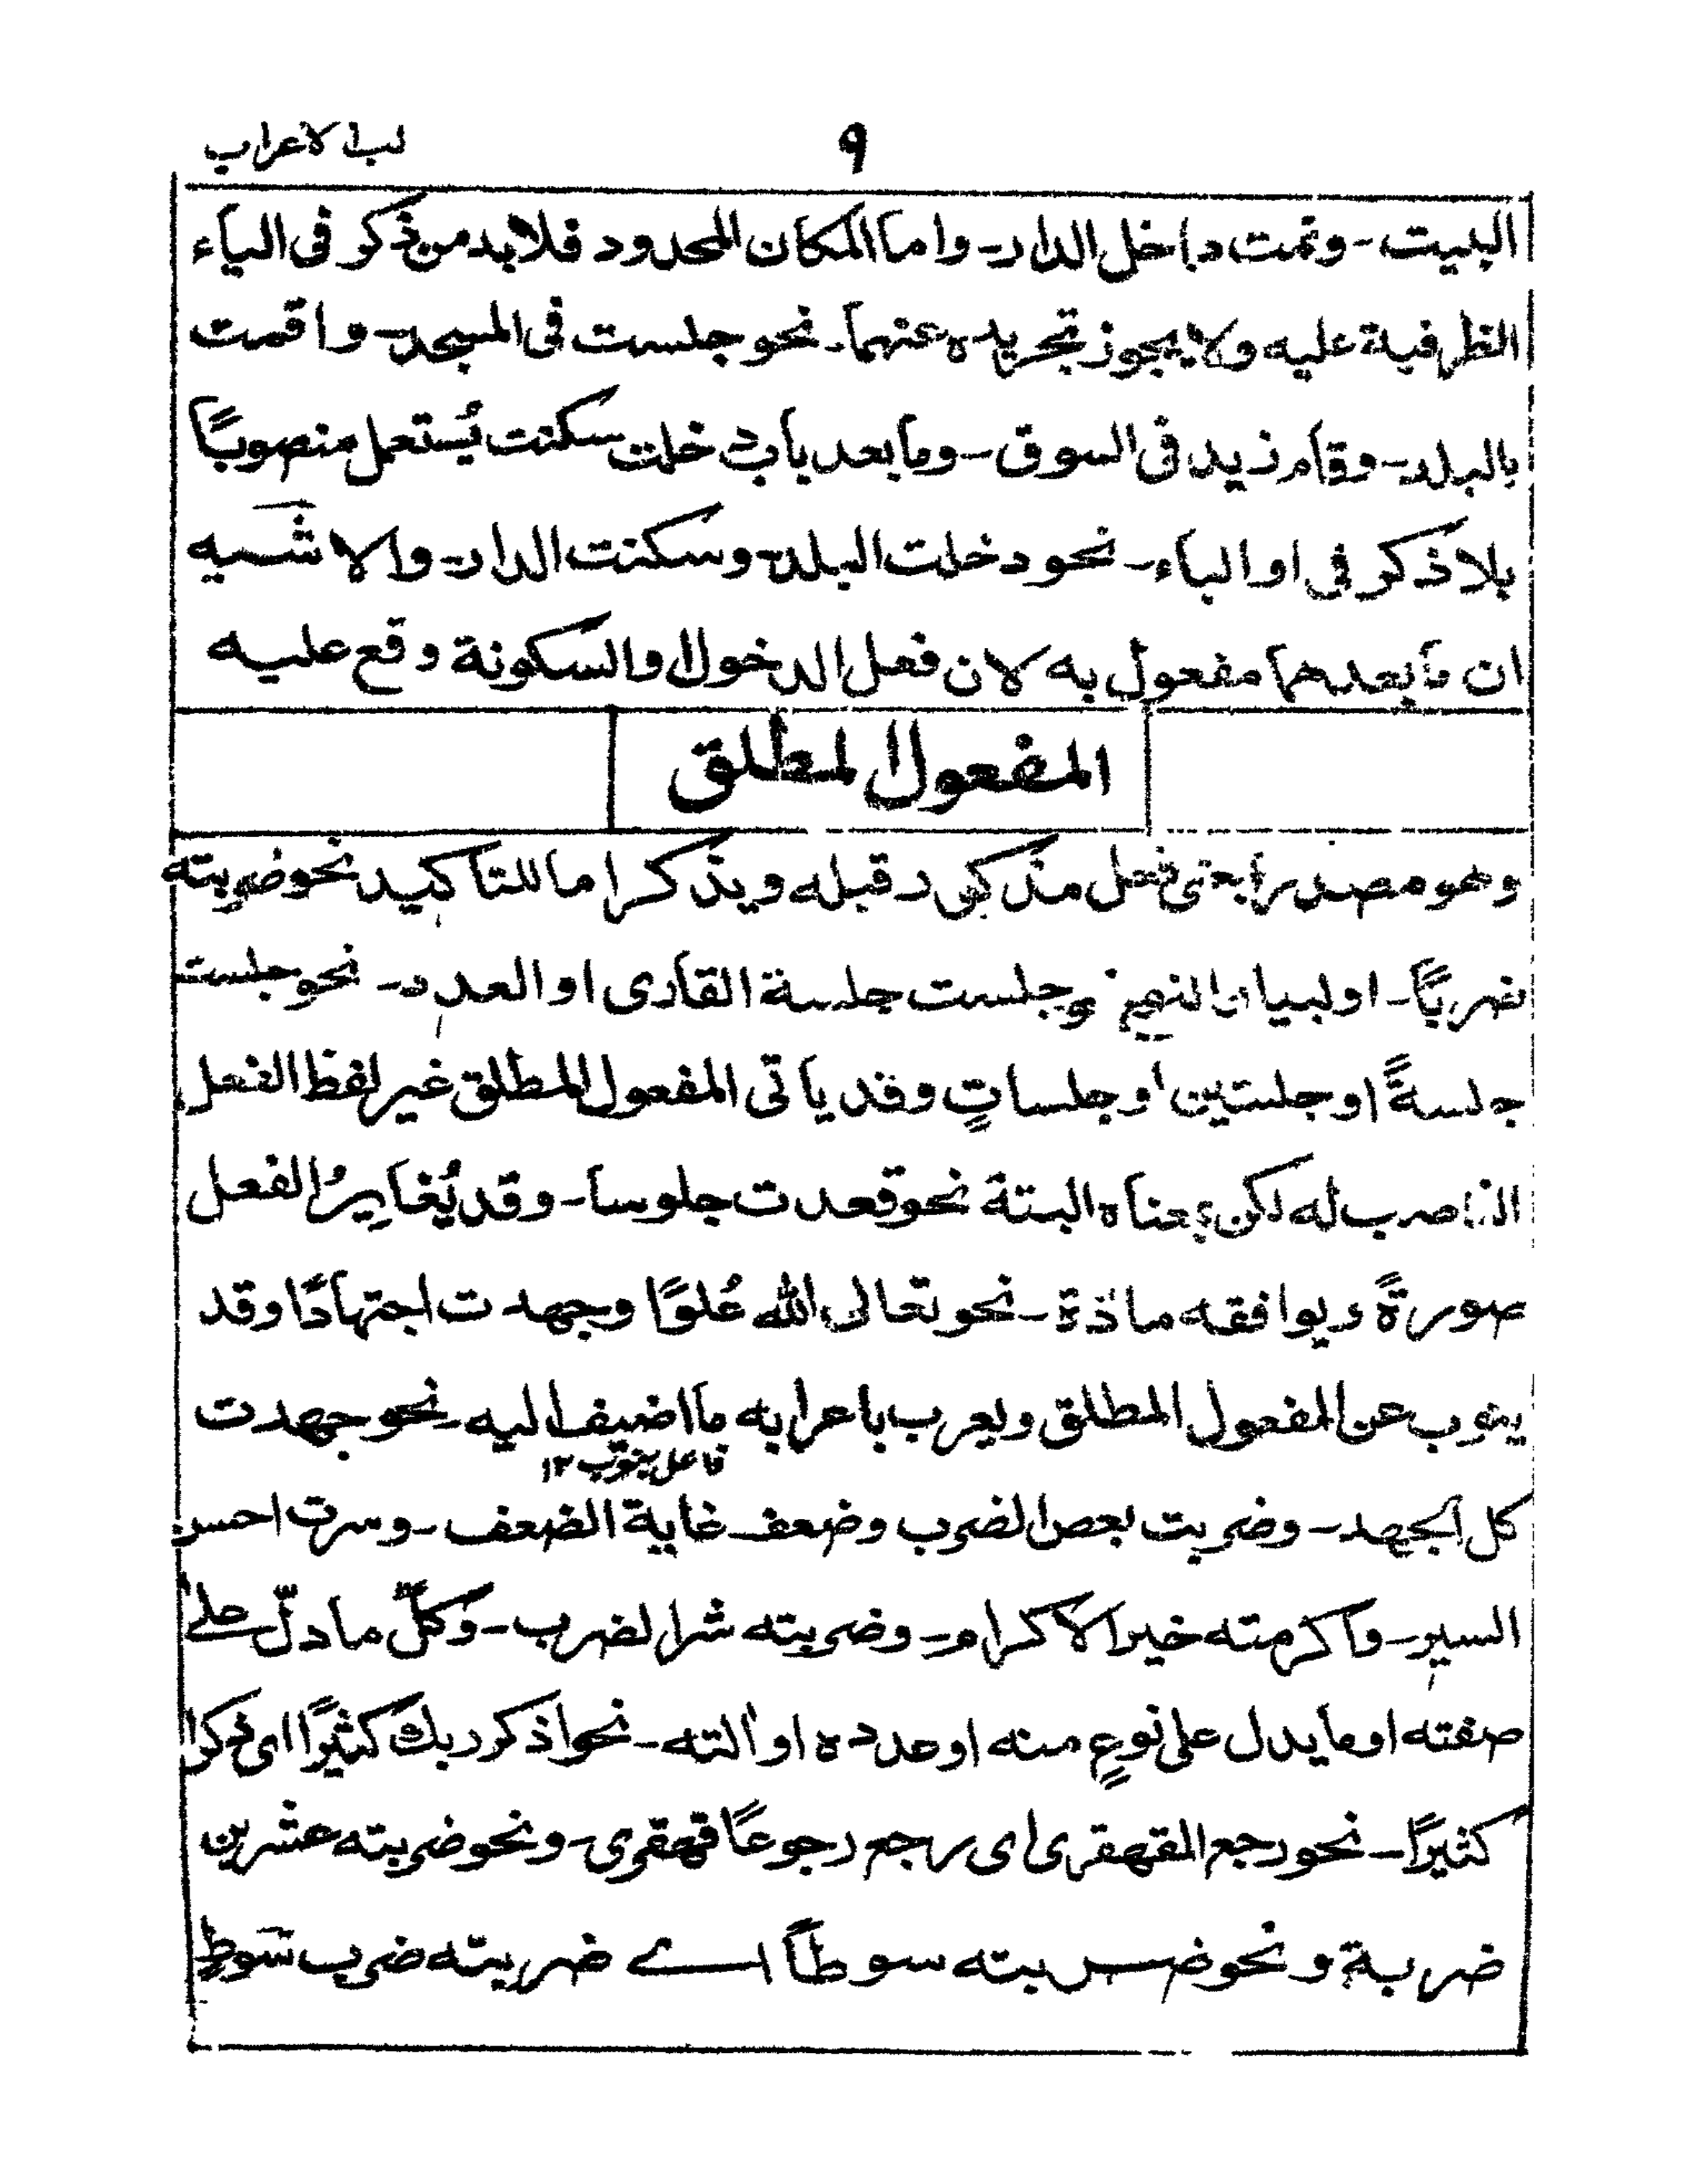 لب الاعراب
٩
البیت - ونمت داخل الدار - واما المکان المحدود فلا بد من ذکر فی الباء
الظرفیة علیه ولا یجوز تجریده عنهما - نحو جلست فی المسجد - واقمت
بالبلد - وقام زید فی السوق - وما بعد باب دخلت سکنت یُستعمل منصوبًا
بلا ذکر فی او الباء - نحو دخلت البلد - وسکنت الدار - والا شبه
ان ما بعدهما مفعول به لان فعل الدخول والسکونة وقع علیه
المفعول المطلق
وهو مصدر بمعنی فعل مذکور قبله ویذکر اما للتاکید نحو ضربته
ضربًا - او لبیان النوع نحو جلست جلسة القاری او العدد - نحو جلست
جلسةً او جلستین او جلساتٍ وقد یاتی المفعول المطلق غیر لفظ الفعل
الناصب له لکن بمعناه البتة نحو قعدت جلوسا - وقد یُغایرُ الفعل
صورةً ویوافقه مادة - نحو تعالی الله عُلوًا وجهدت اجتهادًا وقد
ینوب عن المفعول المطلق ویعرب باعرابه ما اضیف الیه - نحو جهدت
فاعل ینوب ١٢
کل الجهد - وضربت بعض الضرب وضعف غایة الضعف - وسرت احسن
السیر - واکرمته خیر الاکرام - وضربته شر الضرب - وکلّ ما دلّ علیٰ
صفته او ما یدل علی نوعٍ منه او عدده او اٰلته - نحو اذکر ربک کثیرًا ای ذکرا
کثیرًا - نحو رجع القهقری ای رجع رجوعًا قهقری - ونحو ضربته عشرین
ضربة ونحو ضربته سوطاً اے ضربته ضرب سَوطٍ